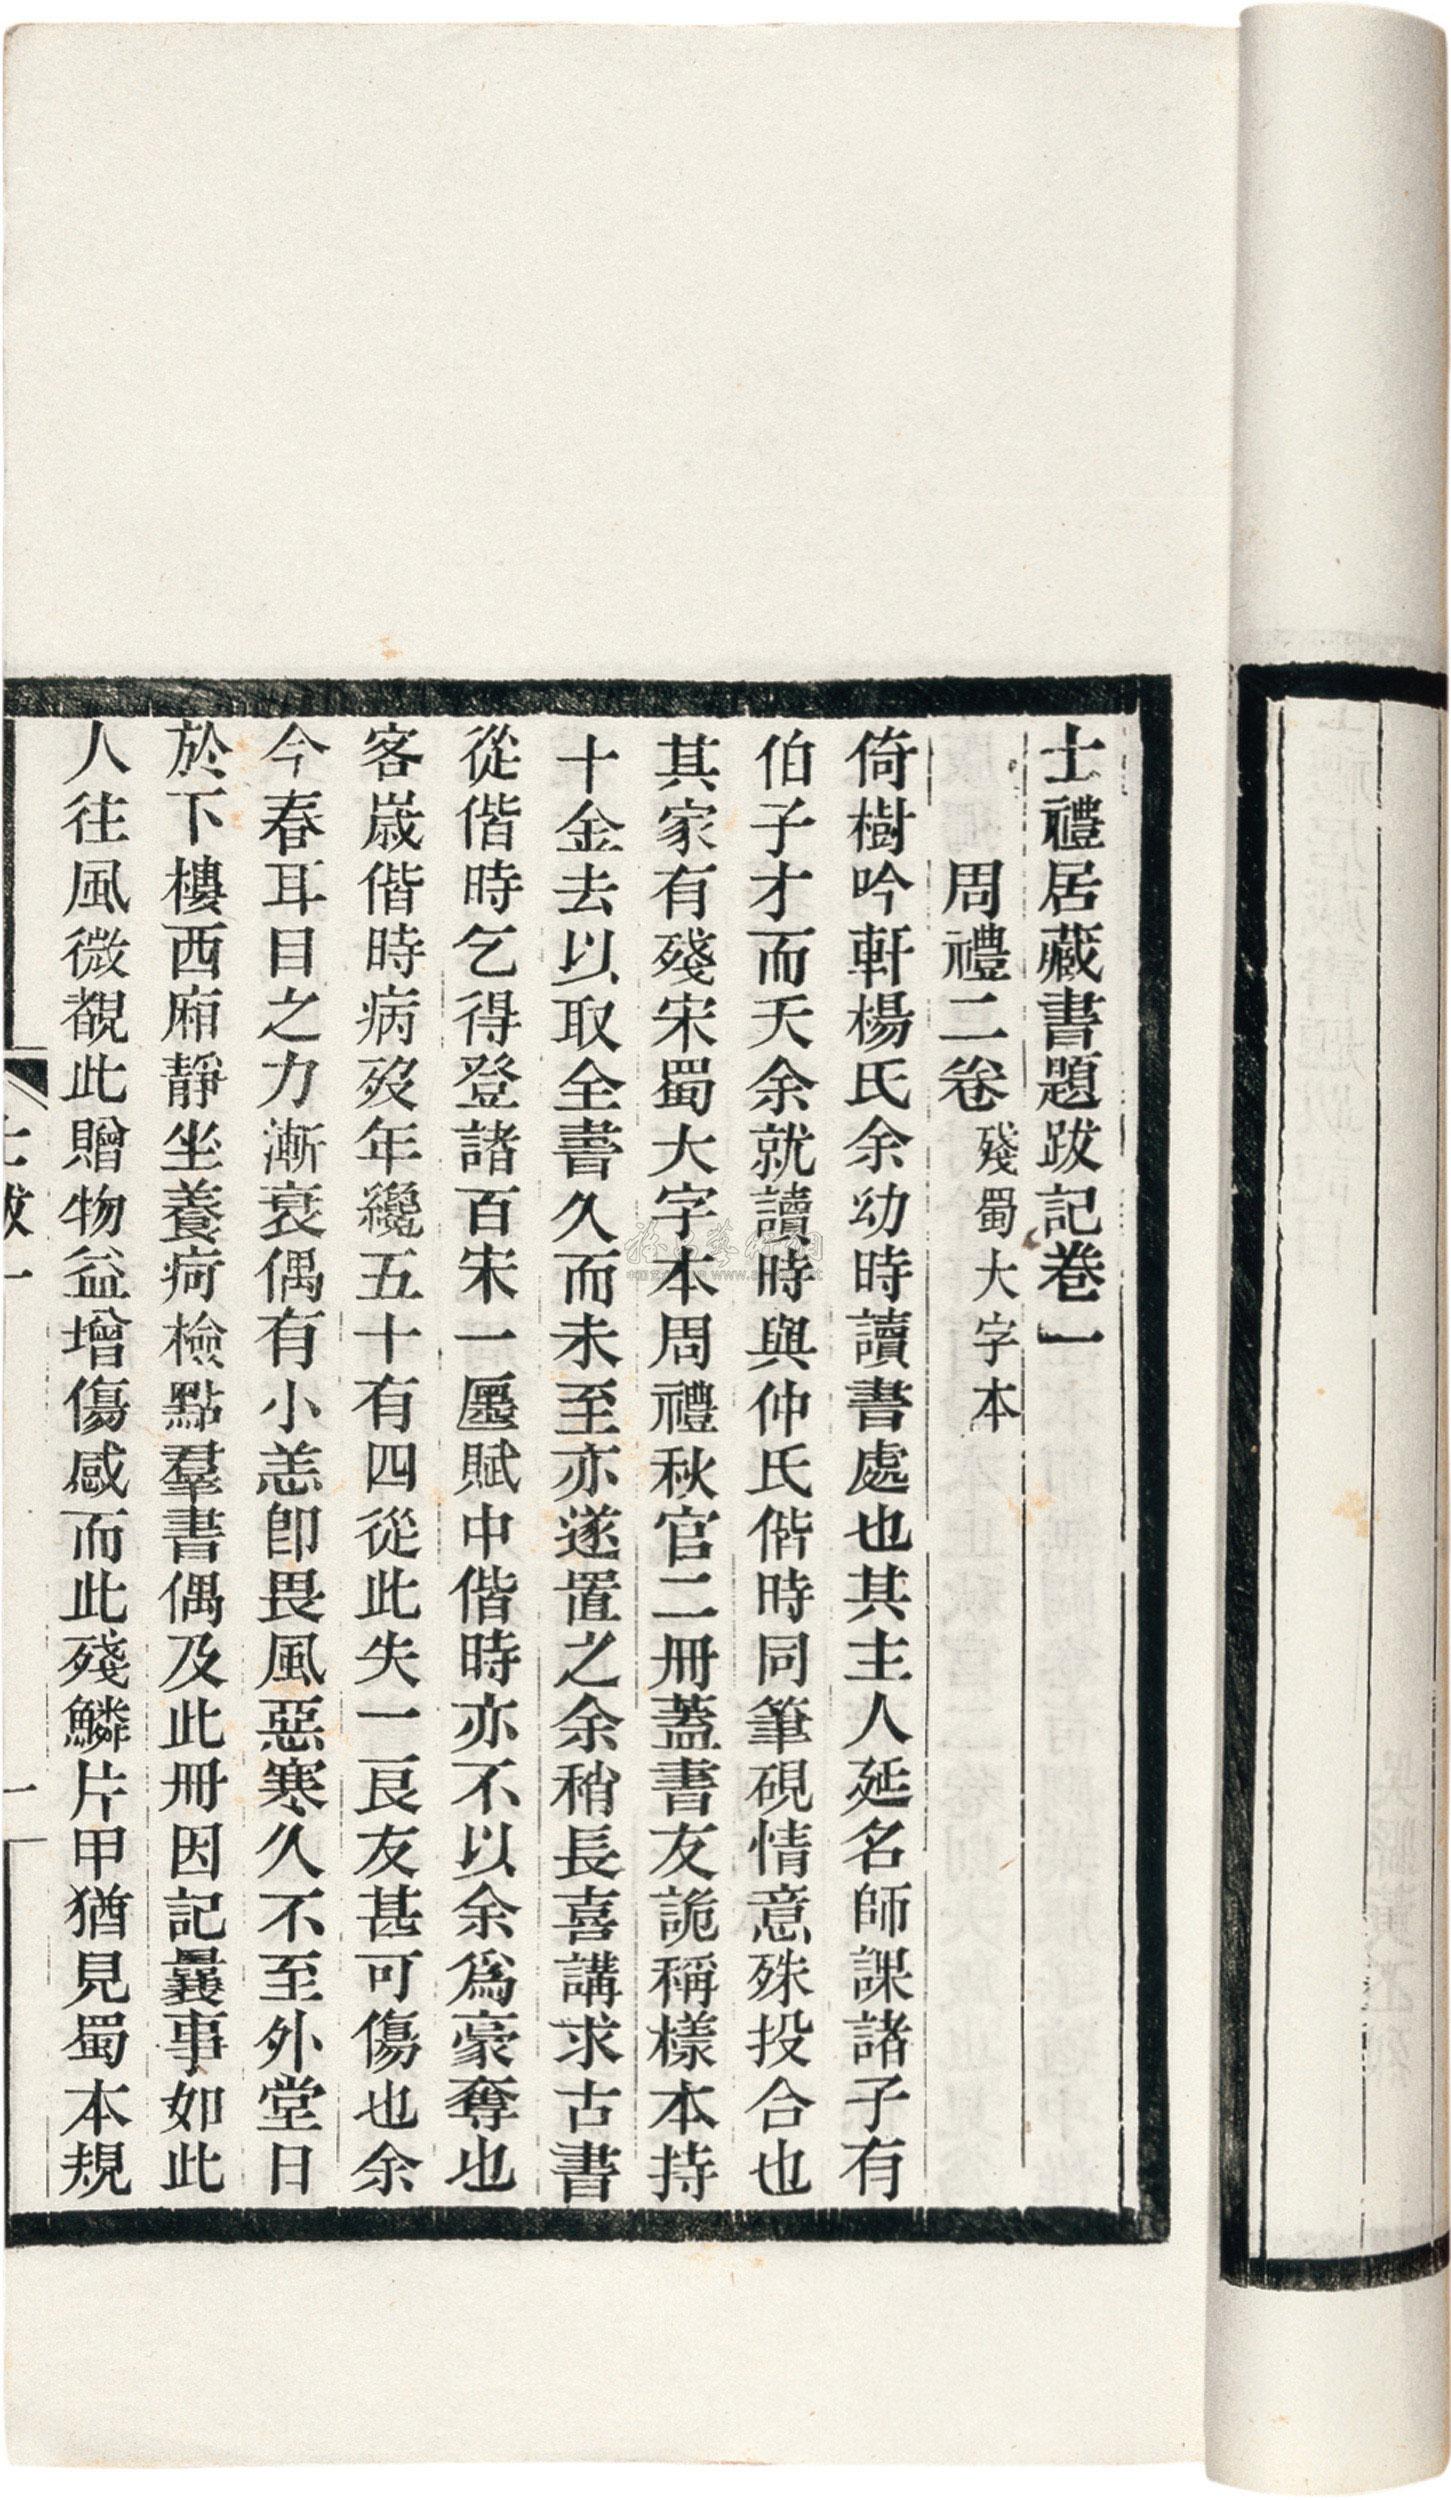 士禮居藏書題跋記卷一
周禮二卷 殘蜀大字本
倚樹吟軒楊氏余幼時讀書處也其主人延名師課諸子有
伯子才而夭余就讀時與仲氏偕時同筆硯情意殊投合也
其家有殘宋蜀大字本周禮秋官二冊蓋書友詭稱樣本持
十金去以取全書久而未至亦遂置之余稍長喜講求古書
從偕時乞得登諸百宋一廛賦中偕時亦不以余爲豪奪也
客嵗偕時病歿年纔五十有四從此失一良友甚可傷也余
今春耳目之力漸衰偶有小恙卽畏風惡寒久不至外堂日
於下樓西廂靜坐養疴檢點羣書偶及此冊因記曩事如此
人往風微覩此贈物益增傷感而此殘鱗片甲猶見蜀本規
一